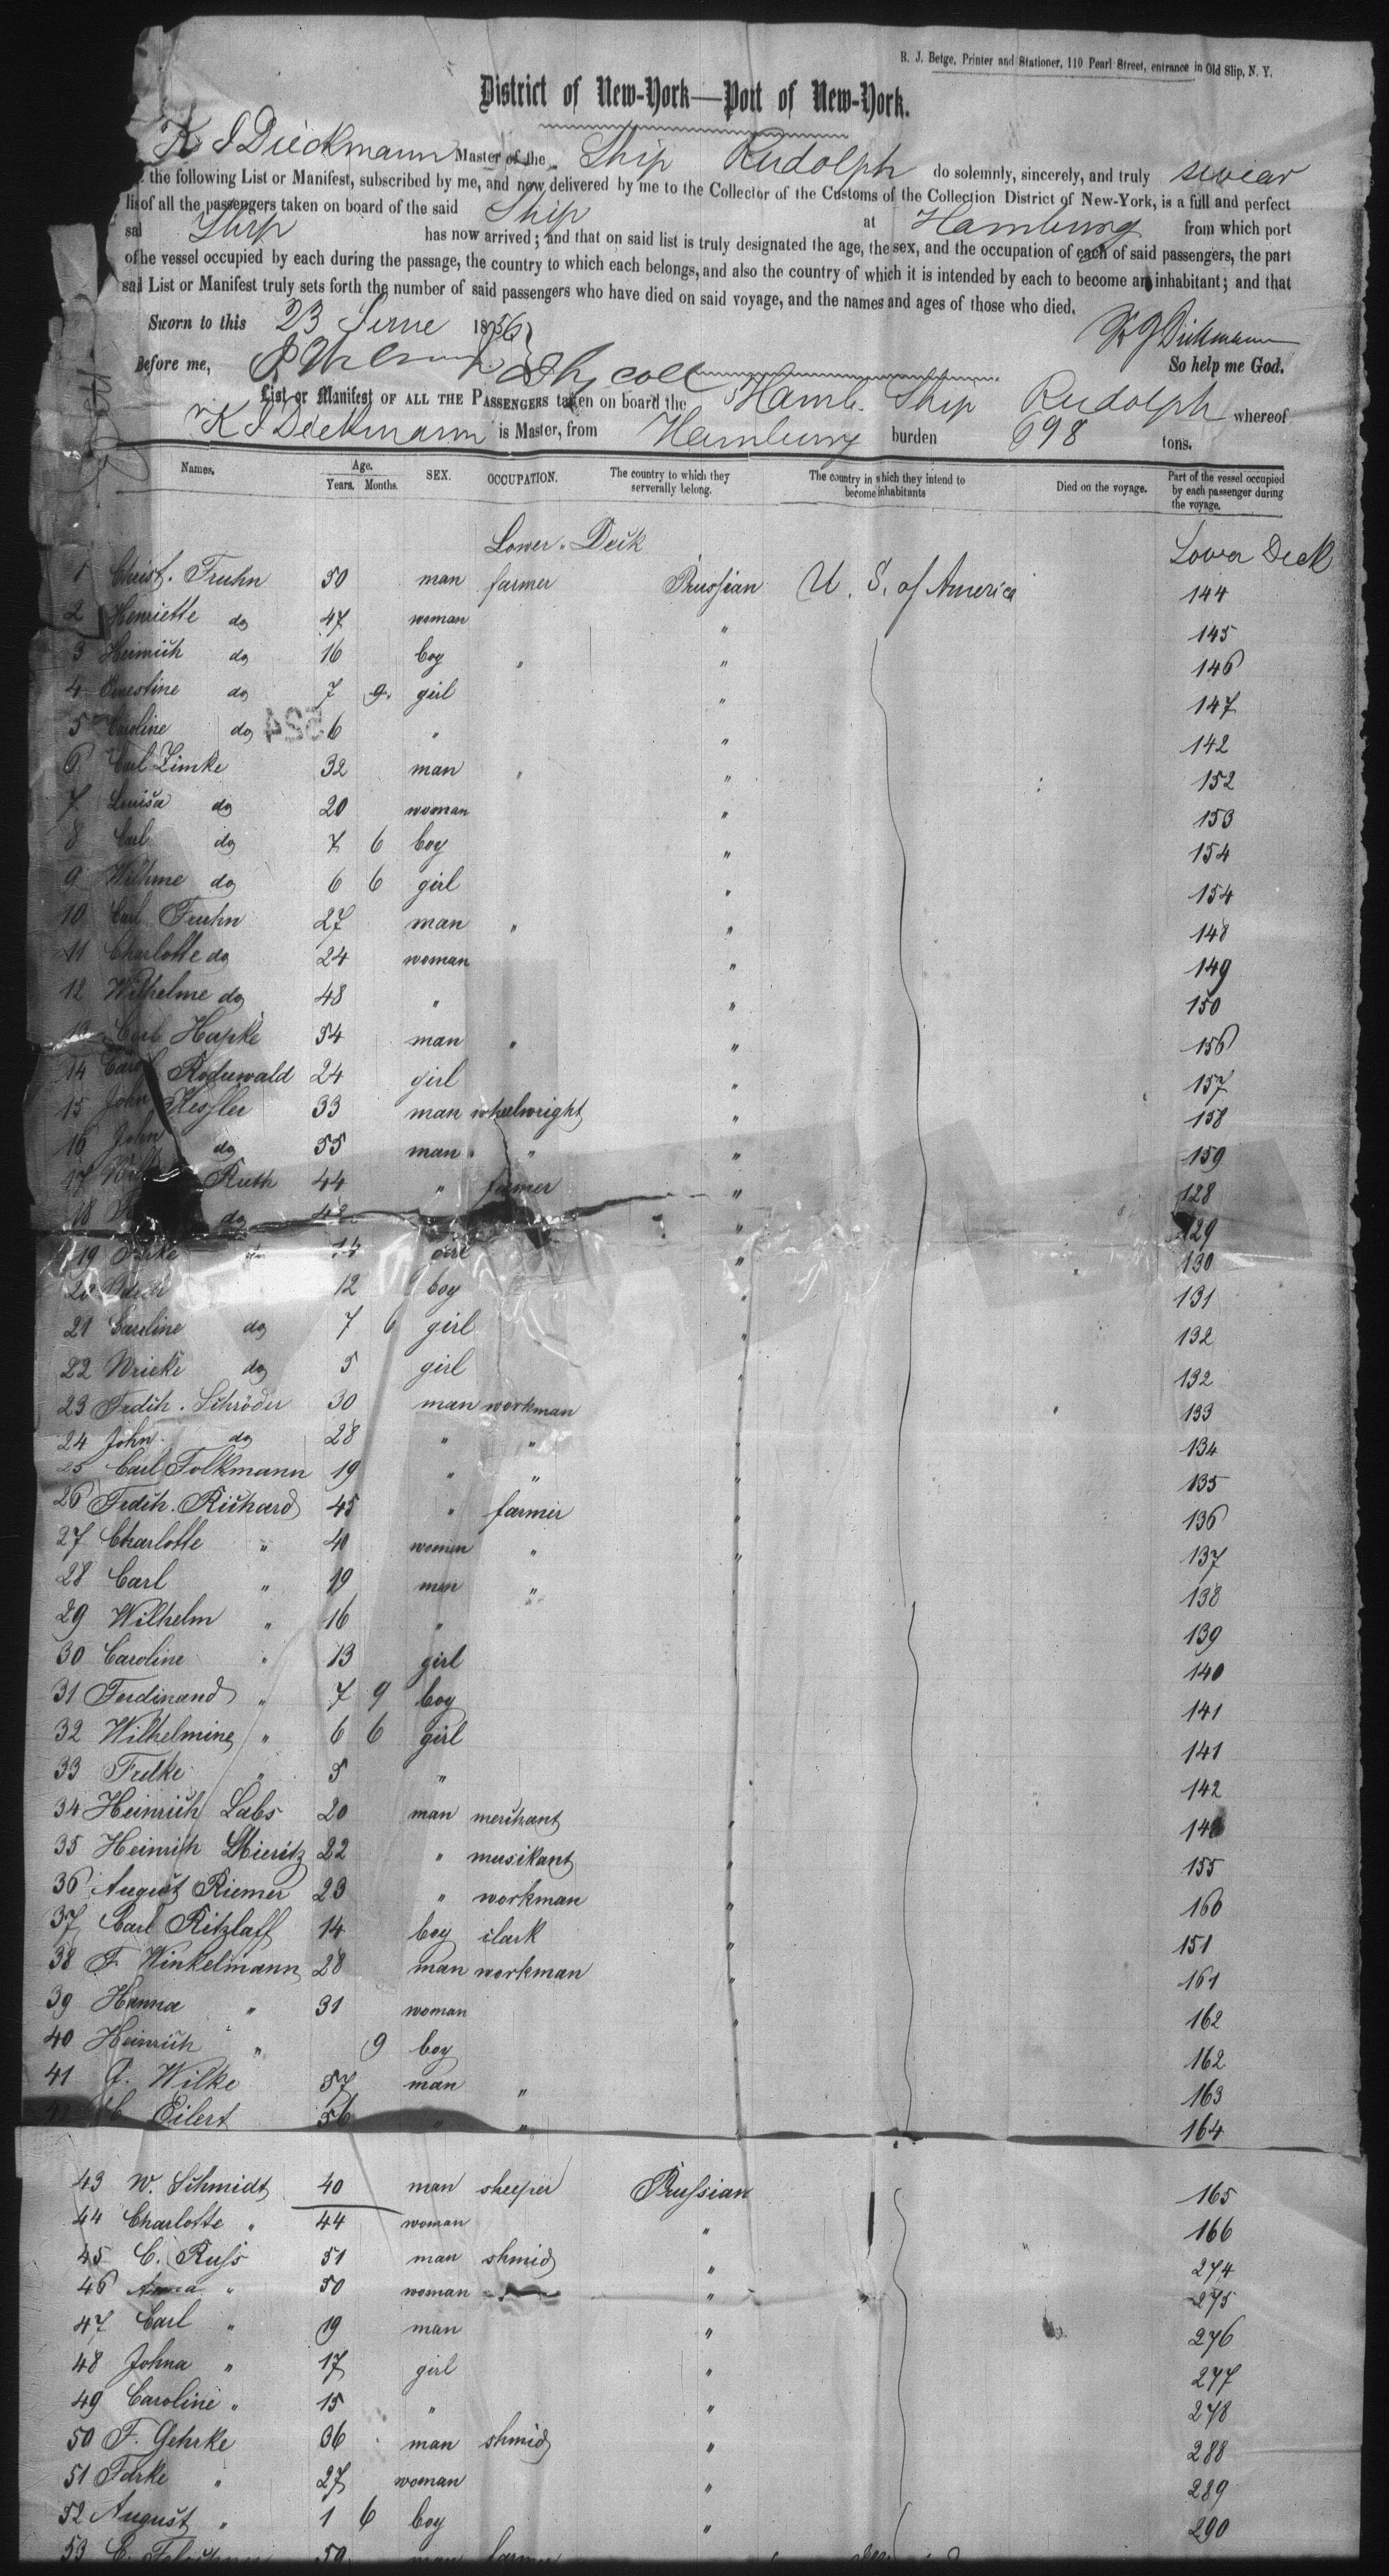 R. J. Betge, Printer and Stationer, 110 Pearl Street, entrance in Old Slip, N. Y.
District of New-York—Port of New-York.
K J Dieckmann Master of the Ship Rudolph do solemnly, sincerely, and truly swear
the following List or Manifest, subscribed by me, and now delivered by me to the Collector of the Customs of the Collection District of New-York, is a full and perfect
lis of all the passengers taken on board of the said Ship at Hamburg from which port
sai Ship has now arrived; and that on said list is truly designated the age, the sex, and the occupation of each of said passengers, the part
of he vessel occupied by each during the passage, the country to which each belongs, and also the country of which it is intended by each to become an inhabitant; and that
said List or Manifest truly sets forth the number of said passengers who have died on said voyage, and the names and ages of those who died.
Sworn to this 23 June 1856 K J Dieckmann
Before me, So help me God.
List or Manifest OF ALL THE PASSENGERS taken on board the Hamb. Ship Rudolph whereof
K J Dieckmann is Master, from Hamburg burden 698 tons.
Names. Age. Years. Months. SEX. OCCUPATION. The country to which they serverally belong. The country in which they intend to become inhabitants Died on the voyage. Part of the vessel occupied by each passenger during the voyage.
Lower Deck Lower Deck
1 Christ. Fruhn 50 man farmer Prussian U. S. of America 144
2 Henriette do 47 woman " 145
3 Heinrich do 16 boy " " 146
4 Ernestine do 7 9 girl " 147
5 Caroline do 6 " " 142
524
6 Carl Limke 32 man " " 152
7 Louisa do 20 woman " 153
8 Carl do 7 6 boy " 154
9 Wilhme do 6 6 girl " 154
10 Carl Fruhn 27 man " " 148
11 Charlotte do 24 woman " 149
12 Wilhelme do 48 " " 150
13 Carl Hapke 54 man " " 156
14 Rodewald 24 girl " 157
15 John Kessler 33 man wheelwright " 158
16 John do 55 man " " 159
17 Ruth 44 " farmer " 128
18 do 42 " 129
19 14 girl " 130
20 12 boy " 131
21 Caroline do 7 6 girl " 132
22 Wrieke do 5 girl " 132
23 Fredth. Schröder 30 man workman " 133
24 John do 28 " " " 134
25 Carl Folkmann 19 " " " 135
26 Fredth. Richard 45 " farmer " 136
27 Charlotte " 40 women " " 137
28 Carl " 19 man " 138
29 Wilhelm " 16 " 139
30 Caroline " 13 girl 140
31 Ferdinand " 7 9 boy 141
32 Wilhelmine " 6 6 girl 141
33 Frdke " 5 " 142
34 Heinrich Labs 20 man merchant "
35 Heinrich Mieritz 22 " musikant " 155
36 August Riemer 23 " workman " 160
37 Carl Ritzlaff 14 boy clark " 151
38 F. Winkelmann 28 man workman " 161
39 Hanna " 31 woman " 162
40 Heinrich " 9 boy 162
41 Wilke 57 man " 163
42 Eilert 56 " " 164
43 W. Schmidt 40 man sheeper Prussian 165
44 Charlotte " 44 woman " 166
45 C. Russ 51 man shmid " 274
46 Anna " 50 woman " 275
47 Carl " 19 man " 276
48 Johna " 17 girl " 277
49 Caroline " 15 " " 278
50 F. Gehrke 36 man shmid " 288
51 Farke " 27 woman " 289
52 August " 1 6 boy " 290
53 59 man farmer